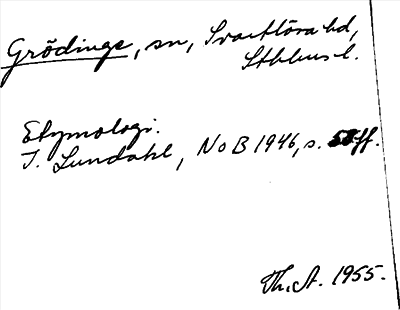 Grödinge, sn, Svartlösa hd,
Sthlms l.
Etymologi.
I. Lundahl, NoB 1946, s. 50ff.
Th. A. 1955.